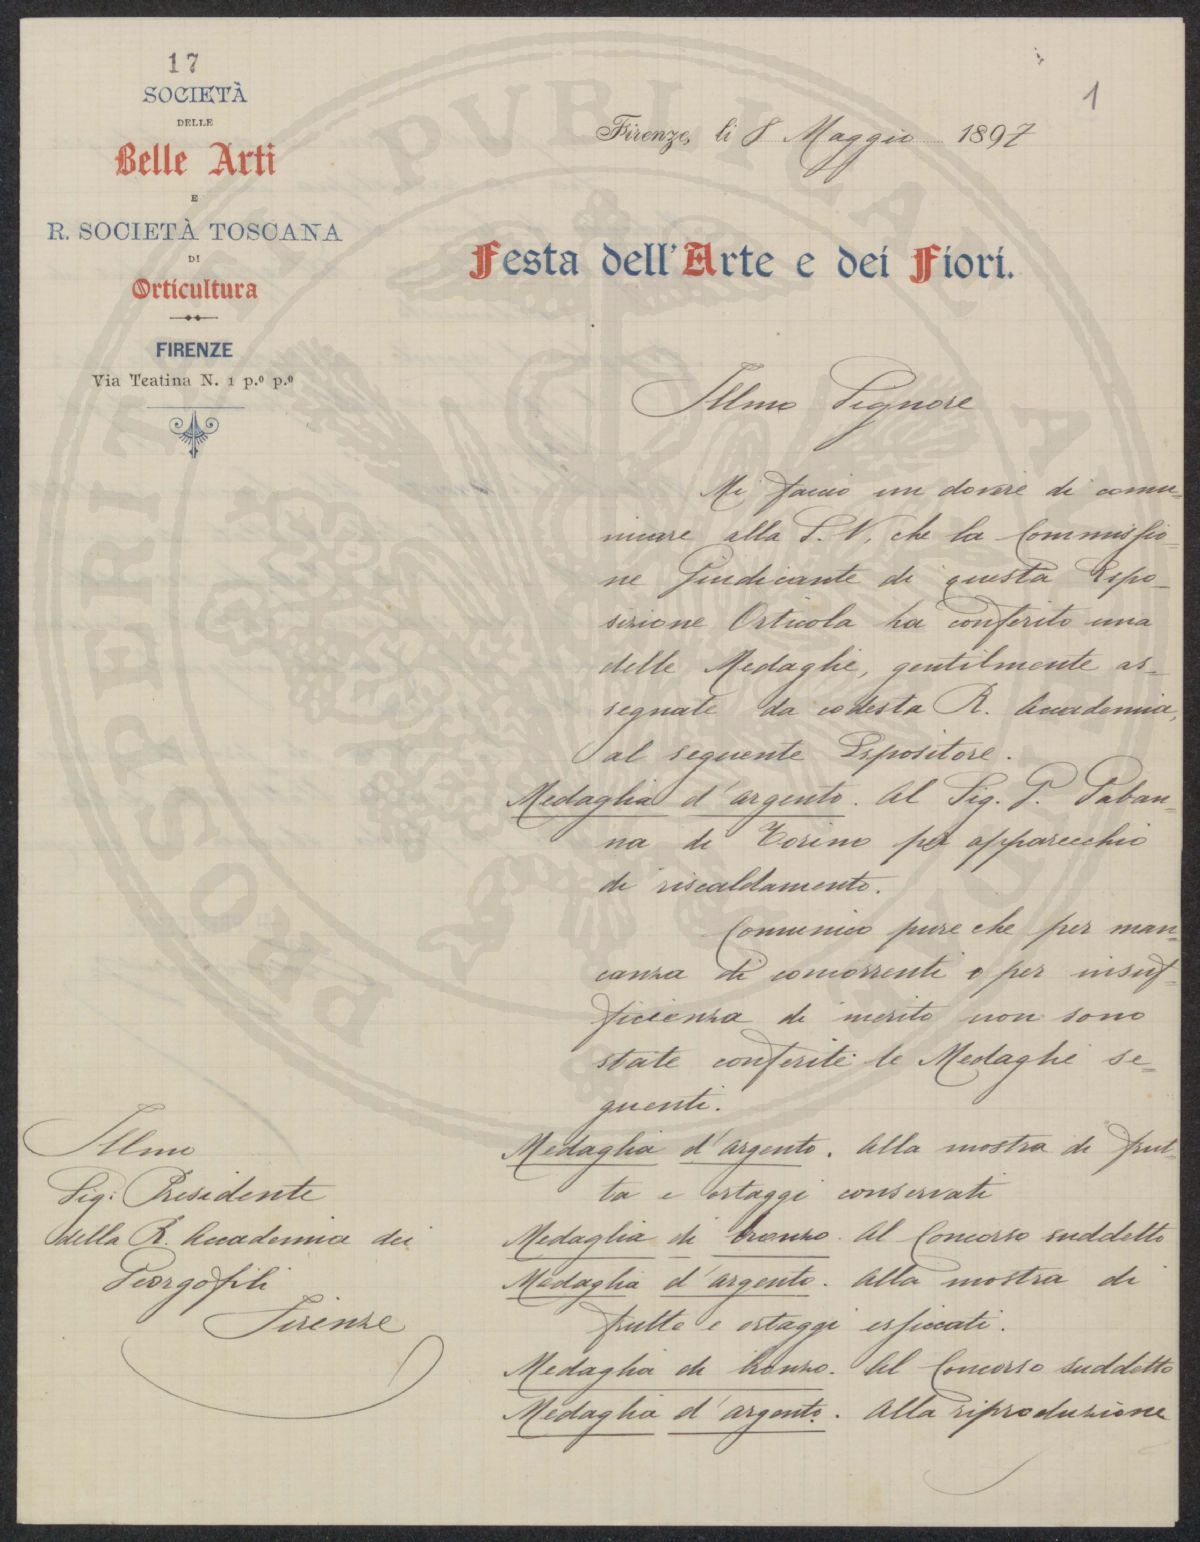 17
SOCIETÀ
DELLE
Belle Arti
E
R. SOCIETÀ TOSCANA
DI
Orticultura
FIRENZE
Via Teatina N. 1 p.º p.º
1
Firenze, li 8 Maggio 1897
Festa dell'Arte e dei Fiori.
Illmo Signore
Mi faccio un dovere di comu=
nicare alla S. V. che la Commissio=
ne Giudicante di questa Espo=
sizione Orticola ha conferito una
delle Medaglie, gentilmente as=
segnate da codesta R. Accademia,
al seguente Espositore.
Medaglia d'argento. Al Sig. P. Paban=
na di Torino per apparecchio
di riscaldamento.
Comunico pure che per man=
canza di concorrenti o per insuf=
ficienza di merito non sono
state conferite le Medaglie se=
guenti.
Medaglia d'argento. Alla mostra di frut=
ta e ortaggi conservati
Medaglia di bronzo. Al Concorso suddetto
Medaglia d'argento. Alla mostra di
frutte e ortaggi essiccati.
Medaglia di bronzo. Al Concorso suddetto
Medaglia d'argento. Alla riproduzione
Illmo
Sig: Presidente
della R. Accademia dei
Georgofili
Firenze
PROSPERITATI PVBLICAE AVGENDAE